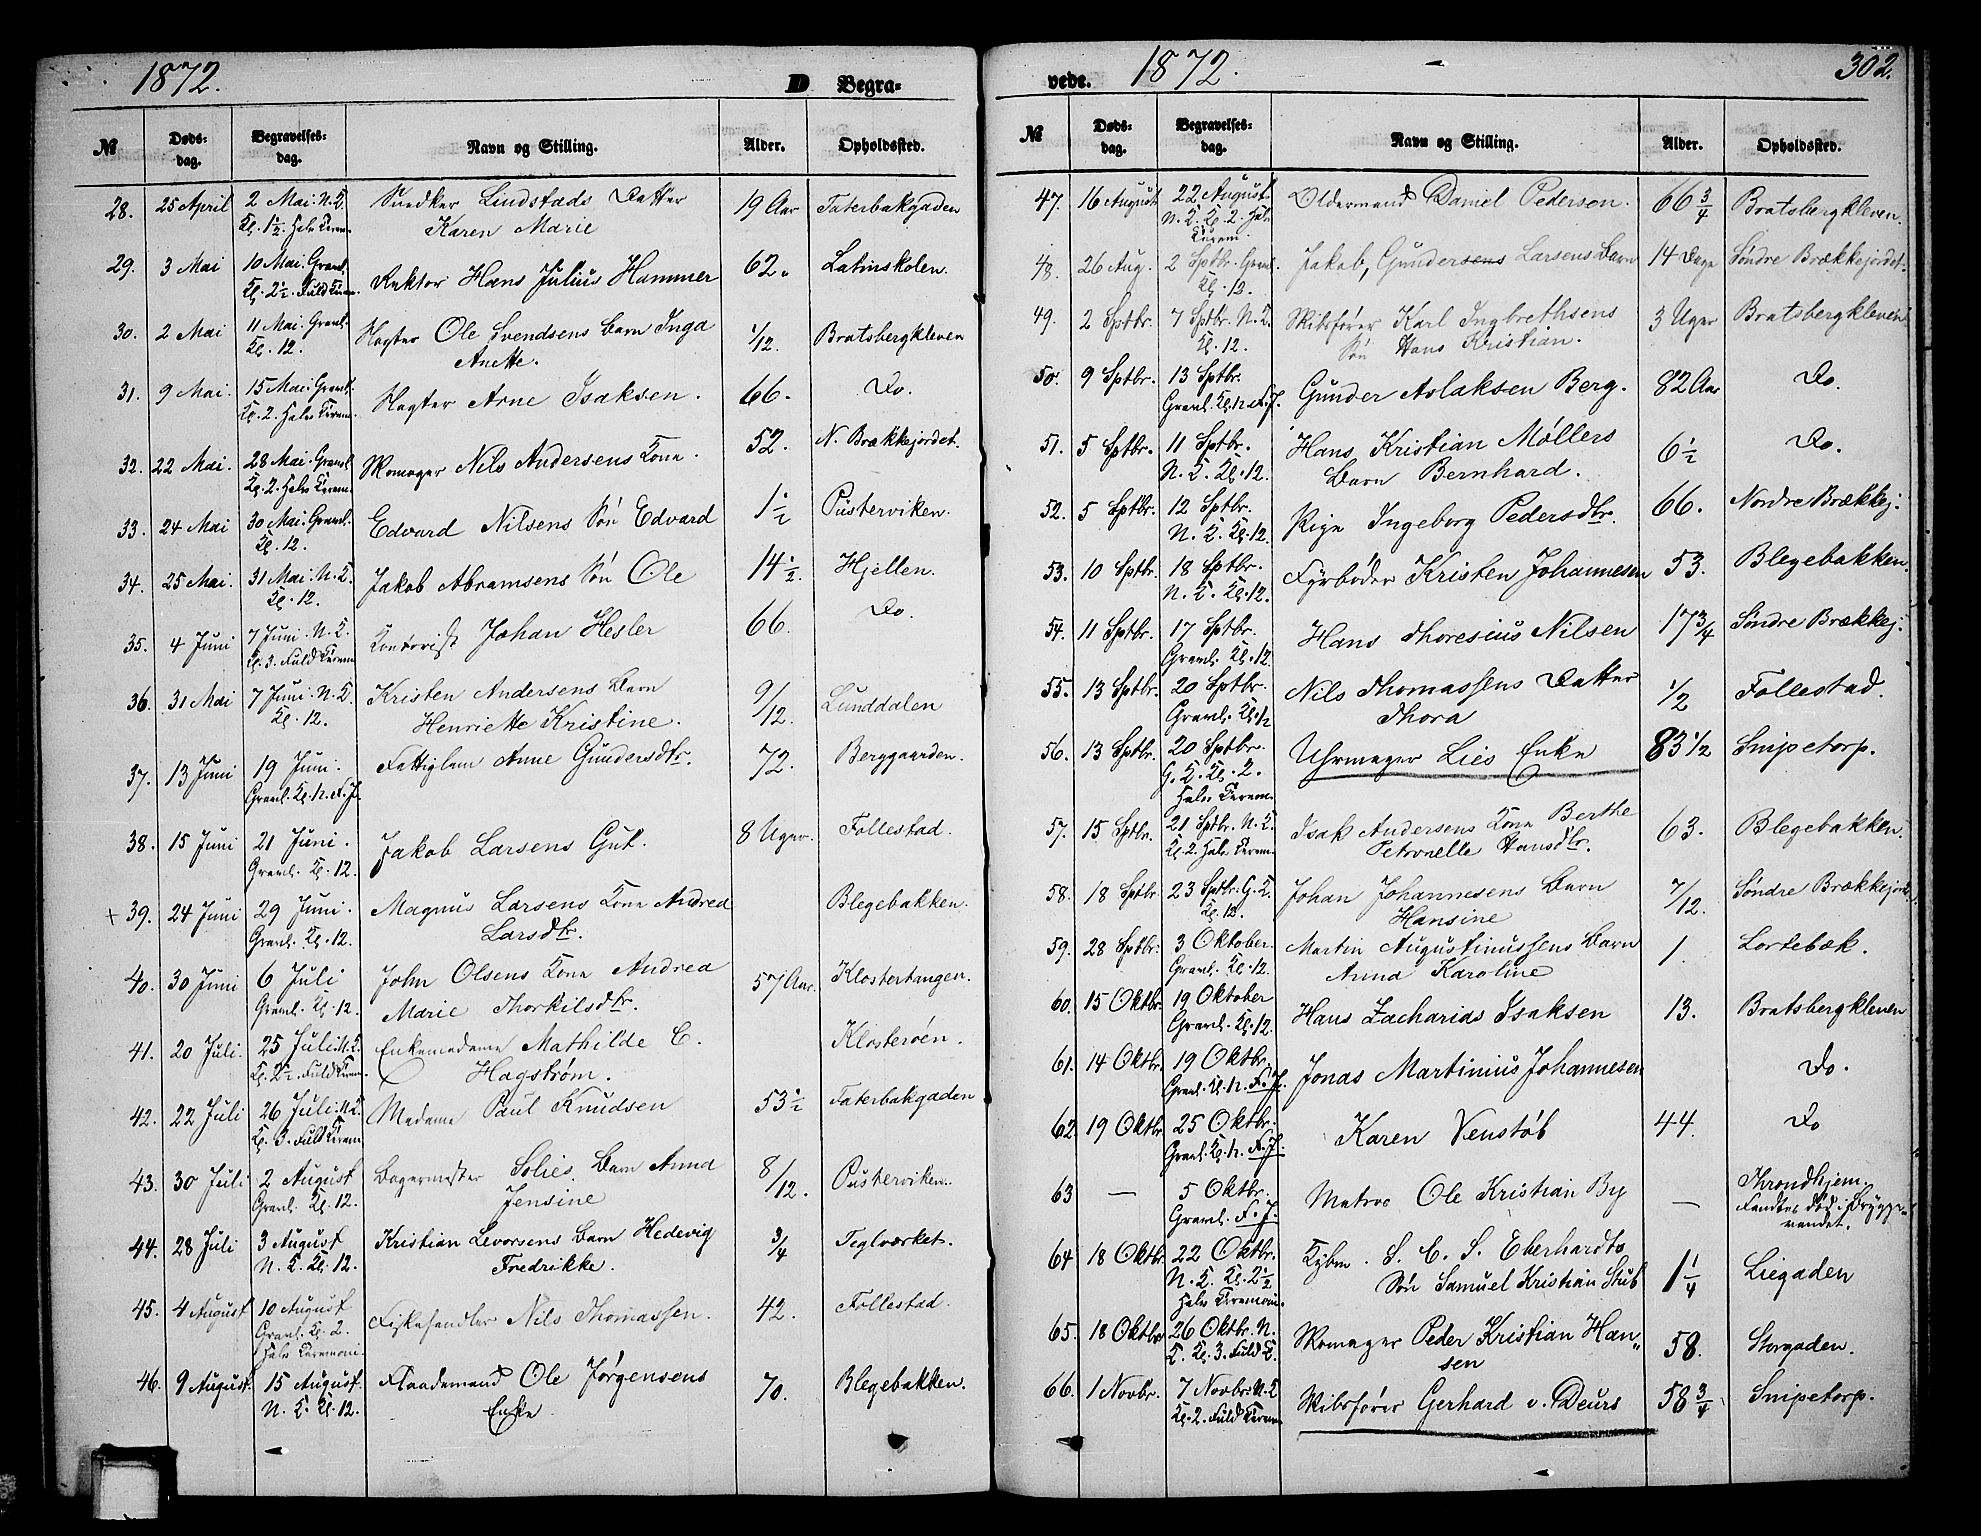 1872.
D Begra-
№ Døds-dag. Begravelses-dag. Navn og Stilling. Alder. Opholdssted.
28. 25 April 2 Mai. N. K. Snedker Lindstads Datter 19 Aar Taterbakgaden
Kl. 1½. Halv Cerem. Karen Marie
29. 3 Mai 10 Mai. Graml. Rektor Hans Julius Hammer 62. Latinskolen.
Kl. 2½. Fuld Cerem.
30. 2 Mai 11 Mai. Graml. Ole Svendsens Barn Inga 1/12. Bratsbergkleven
Kl. 12. Anette.
31. 9 Mai. 15 Mai. Graml. Arne Isaksen. 66. Do.
Kl. 2. Halv Cerem.
32. 22 Mai. 28 Mai. Graml. Skomager Nils Andersens Kone. 52. N. Brækkejordet.
Kl. 2. Halv Cerem.
33. 24 Mai 30 Mai. Graml. Edvard Nilsens Søn Edvard 1½ Pusterviken.
Kl. 12.
34. 25 Mai. 31 Mai. N. K. Jakob Abramsens Søn Ole 14½. Hjellen.
Kl. 12.
35. 4 Juni 7 Juni. N. K. Johan Hesler 66. Do.
Kl. 3. Fuld Cerem
36. 31 Mai 7 Juni. N. K. Kristen Andersens Barn 9/12. Lunddalen
Kl. 12. Henriette Kristine.
37. 13 Juni 19 Juni. Fattiglem Anne Gundersdtr. 72. Berggaarden.
Graml. Kl. 12. F. J.
38. 15 Juni 21 Juni. Jakob Larsens Gut. 8 Uger. Follestad.
Graml. Kl. 12.
+ 39. 24 Juni 29 Juni. Magnus Larsens Kone Andrea Blegebakken.
Graml. Kl. 12. Larsdtr.
40. 30 Juni 6 Juli John Olsens Kone Andrea 57 Aar. Klostertangen.
Graml. Kl. 12. Marie Thorkilsdtr.
41. 20 Juli. 25 Juli. N. K. Enkemadame Mathilde C. Klosterøen.
Kl. 2½. Fuld Cerem. Hagstrøm.
42. 22 Juli 26 Juli. N. K. Madame Paul Knudsen 53½ Taterbakgaden
Kl. 3. Fuld Cerem
43. 30 Juli 2 August Bagermester Solies Barn Anna 8/12. Pusterviken.
Graml. Kl. 12. Jensine
44. 28 Juli 3 August Kristian Levorsens Barn Hedevig 3/4 Teglværket.
N. K. Kl. 12. Fredrikke.
45. 4 August 10 August Fiskehandler Nils Thomassen. 42. Follestad.
Graml. Kl. 2.
Halv Ceremoni.
46. 9 August. 15 August. Flaademand Ole Jørgensens 70. Blegebakken.
N. K. Kl. 12. Enke
vede. 1872. 302.
№ Døds-dag. Begravelses-dag. Navn og Stilling. Alder. Opholdssted.
47. 16 August 22 August. Oldermand Daniel Pederson. 66¾ Bratsbergkleven.
N. K. Kl. 2. Halv
Cerem.
48. 26 Aug. 2 Sptbr. Graml. Jakob, Gundersens Larsens Barn 14 Dage Søndre Brækkejordet.
Kl. 12.
49. 2 Sptbr. 7 Sptbr. N. K. Skibsfører Karl Ingbrethsens 3 Uger Bratsbergkleven
Kl. 12. Søn Hans Kristian.
50. 9 Sptbr. 13 Sptbr. Gunder Aslaksen Berg. 82 Aar Do.
Graml. Kl. 12. F. J.
51. 5 Sptbr. 11 Sptbr. Hans Kristian Møllers 6½ Do.
N. K. Kl. 12. Barn Bernhard.
52. 5 Sptbr. 12 Sptbr. Pige Ingeborg Pedersdtr. 66. Nordre Brækkej.
N. K. Kl. 12.
53. 10 Sptbr. 18 Sptbr. Fyrbøder Kristen Johannesen 53. Blegebakken.
N. K. Kl. 12.
54. 11 Sptbr. 17 Sptbr. Hans Thoresius Nilsen 17¾ Søndre Brækkej.
Graml. Kl. 12.
55. 13 Sptbr. 20 Sptbr. Nils Thomassens Datter 1/2 Follestad.
Graml. Kl. 12 Thora
56. 13 Sptbr. 20 Sptbr. Uhrmager Lies Enke 83 1/2 Snipetorp.
G. K. Kl. 2.
Halv Cerem.
57. 15 Sptbr. 21 Sptbr. N. K. Isak Andersens Kone Berthe 63. Blegebakken.
Kl. 2. Halv Cerem. Petronelle Hansdtr.
58. 18 Sptbr 23 Sptbr. G. K. Johan Johannesens Barn 7/12. Søndre Brækkejord
Kl. 12. Hansine
59. 28 Sptbr. 3 Oktober. Martin Augustinussens Barn 1. Lortebæk.
Graml. Kl. 12. Anna Karoline
60. 15 Oktbr. 19 Oktober Hans Zacharias Isaksen 13. Bratsbergkleven
Graml. Kl. 12.
61. 14 Oktbr. 19 Oktbr. Jonas Martinius Johannesen Do.
Graml. Kl. 12. F. J.
62. 19 Oktbr. 25 Oktbr. Karen Venstøb 44. Do
Graml. Kl. 12. F. J.
63 — 5 Oktbr. Matros Ole Kristian By — Throndhjem.
Graml. F. J. Fandtes død i Brygge-
vandet.
64 18 Oktbr. 22 Oktbr. Kjbm. S. C. S. Eberhardts 1¼ Liegaden
N. K. Kl. 2½ Søn Samuel Kristian Stub
Halv Ceremoni.
65. 18 Oktbr 26 Oktbr. N. Skomager Peder Kristian Han- 58. Storgaden.
K. Kl. 3. Fuld C. sen
66. 1 Novbr. 7 Novbr. N. K Skibsfører Gerhard v. Deurs 58¾ Snipetorp.
Kl. 2. Fuld Cerem